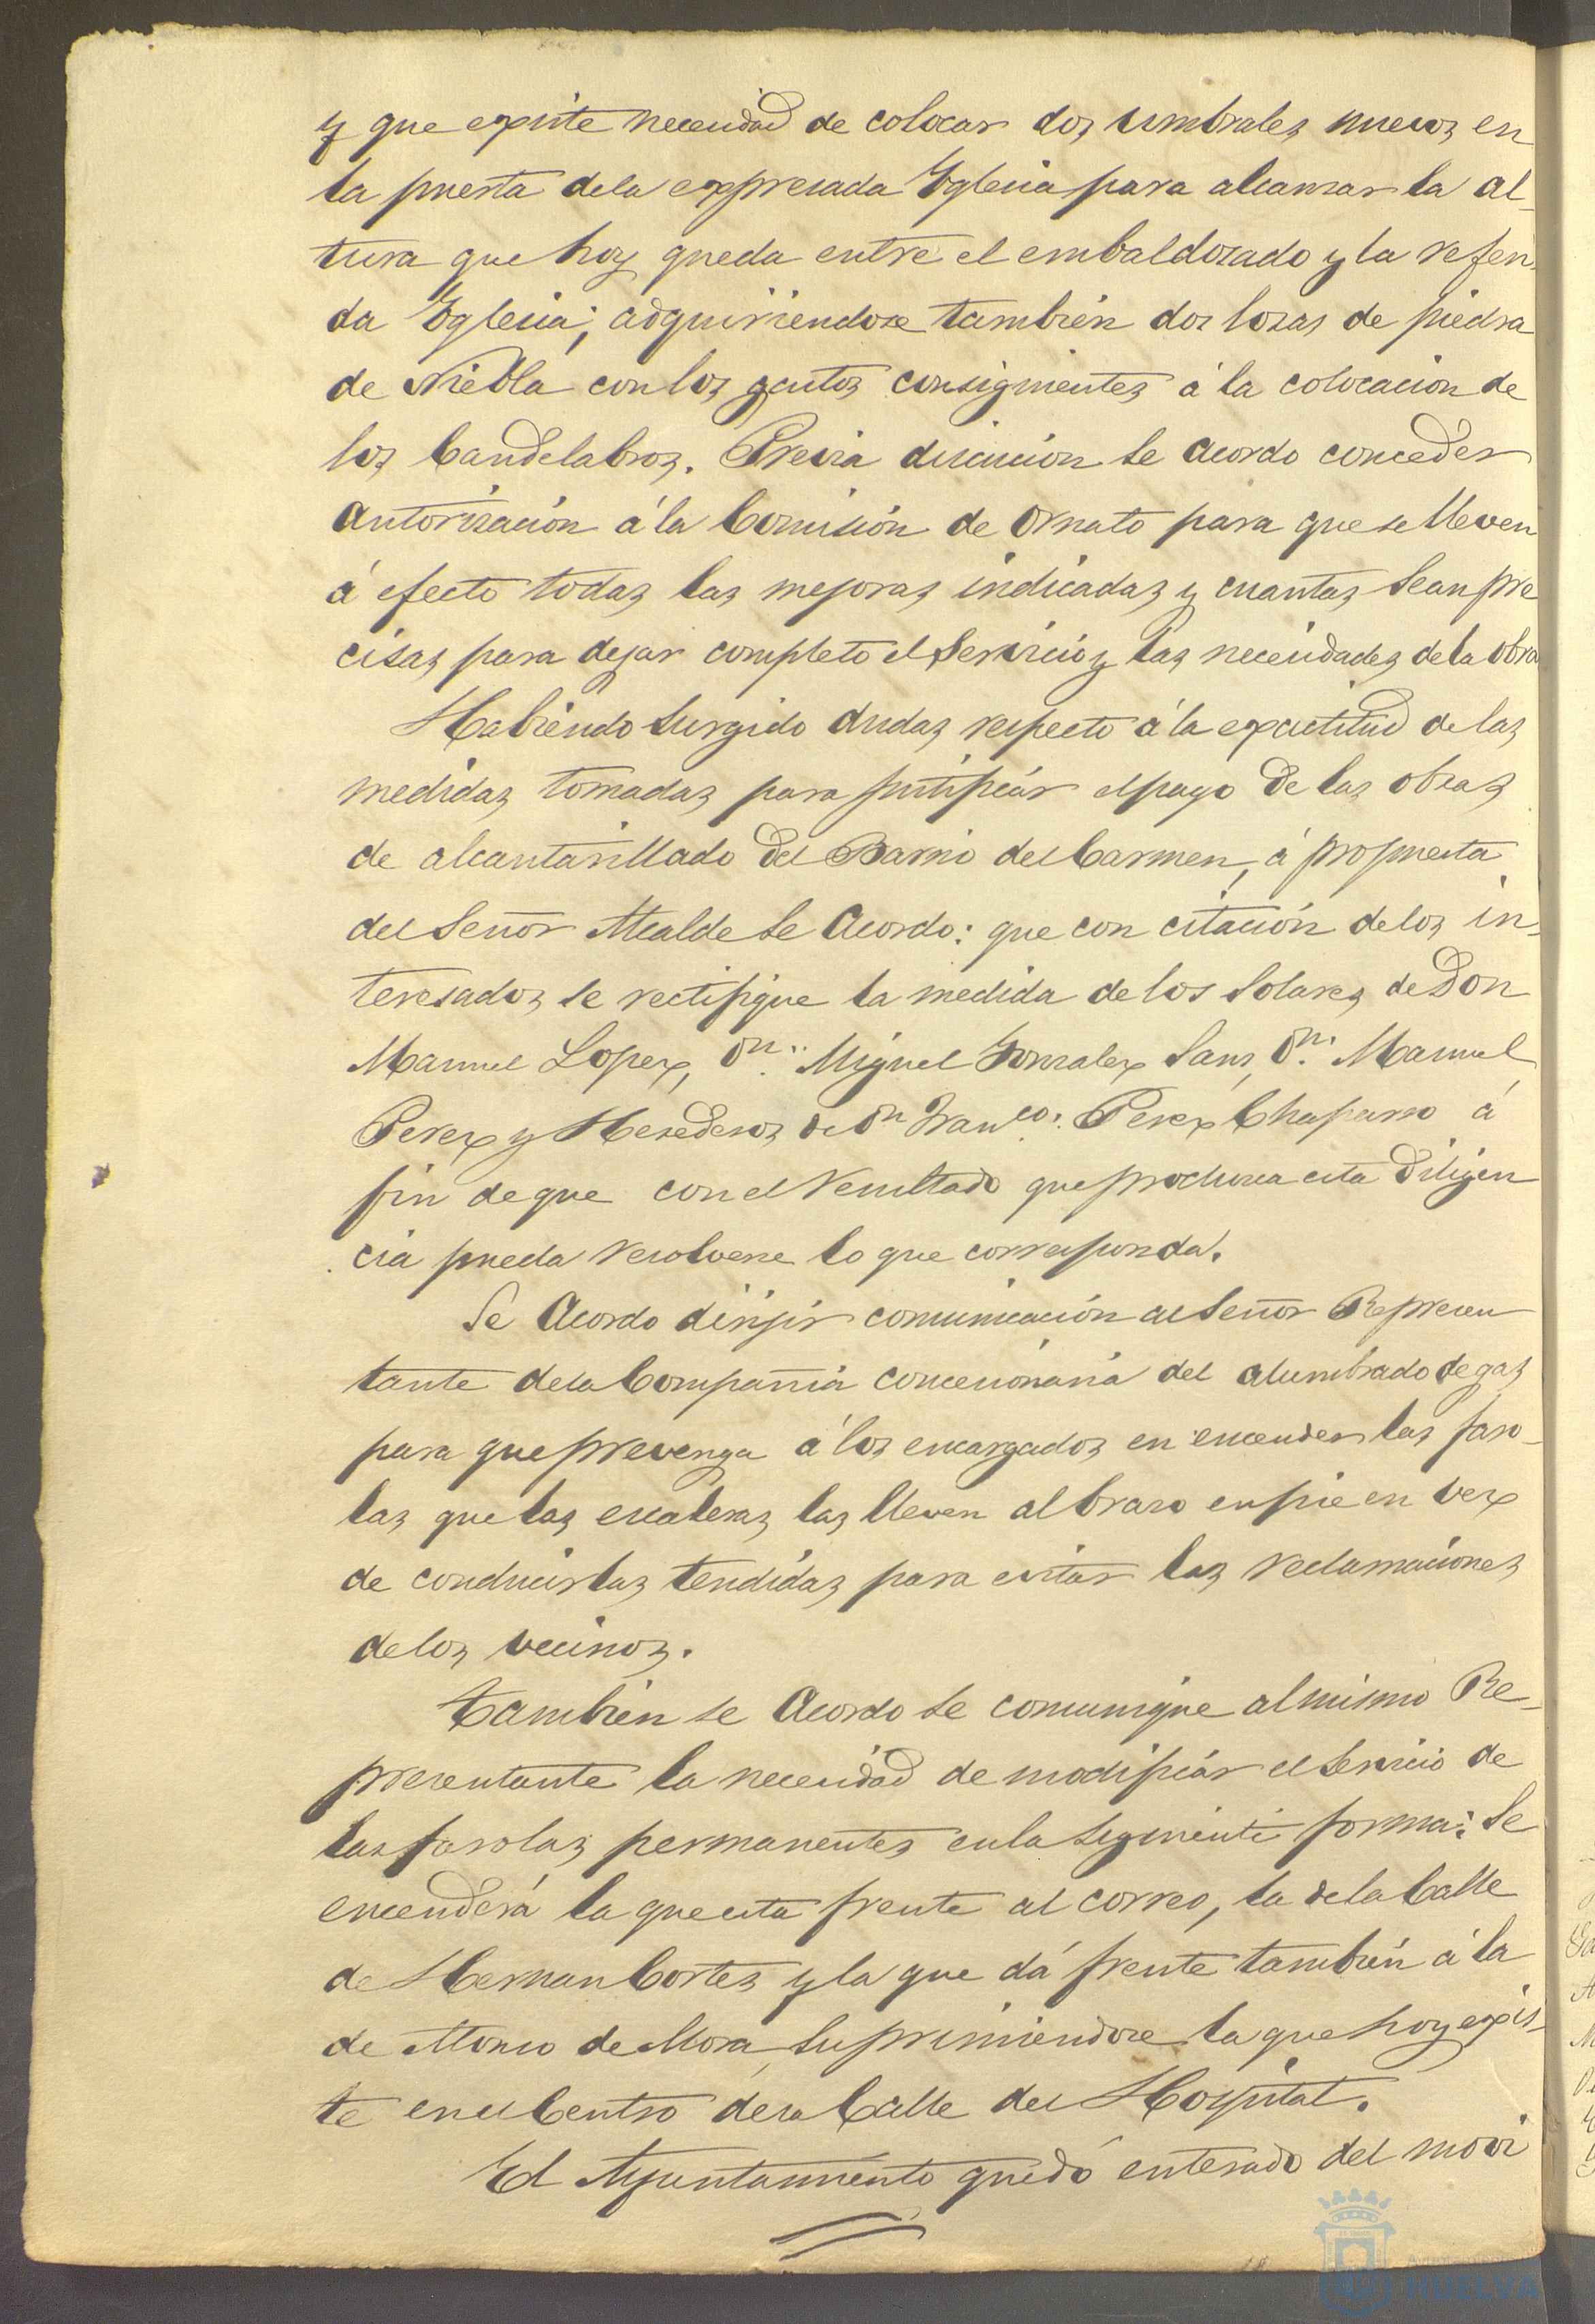 y que existe necesidad de colocar dos umbrales nuevos en
la puerta dela expresada Yglesia para alcanzar la al-
tura que hoy queda entre el embaldosado y la referi-
da Yglesia; adquiriendose también dos losas de piedra
de Niebla con los gastos consiguientes á la colocación de
los Candelabros. Previa discusion se acordo conceder
autorización á la Comisión de ornato para que se lleven
á efecto todas las mejoras indicadas y cuantas sean pre
cisas para dejar completo el Servicio y las necesidades de la obra
Habiendo surgido dudas respecto á la exactitud de las
medidas tomadas para justificar el pago de las obras
de alcantarillado del Barrio del Carmen, á propuesta
del Señor Alcalde se Acordo: que con citación delos in-
teresados se rectifique la medida de los Solares de Don
Manuel Lopez, Dn. Miguel Gonzalez Sanz, Dn. Manuel
Perez y Herederos de Dn Franco. Perez Chaparro á
fin de que con el resultado que produzca esta diligen
cia pueda resolverse lo que corresponda.
Se Acordo dirigir comunicación al Señor Represen
tante dela Compañia concesionaria del alumbrado de gas
para que prevenga á los encargados en encender las faro-
las que las escaleras las lleven al brazo en pie en vez
de conducirlas tendidas para evitar las reclamaciones
delos vecinos.
También se Acordo se comunique al mismo Re-
presentante la necesidad de modificar el servicio de
las farolas permanentes en la siguiente forma: Se
encenderá la que esta frente al correo, la dela Calle
de Hernan Cortes y la que dá frente también á la
de Alonso de Mora, suprimiendose la que hoy exis-
te en el Centro dela Calle del Hospital.
El Ayuntamiento quedó enterado del movi
HUELVA